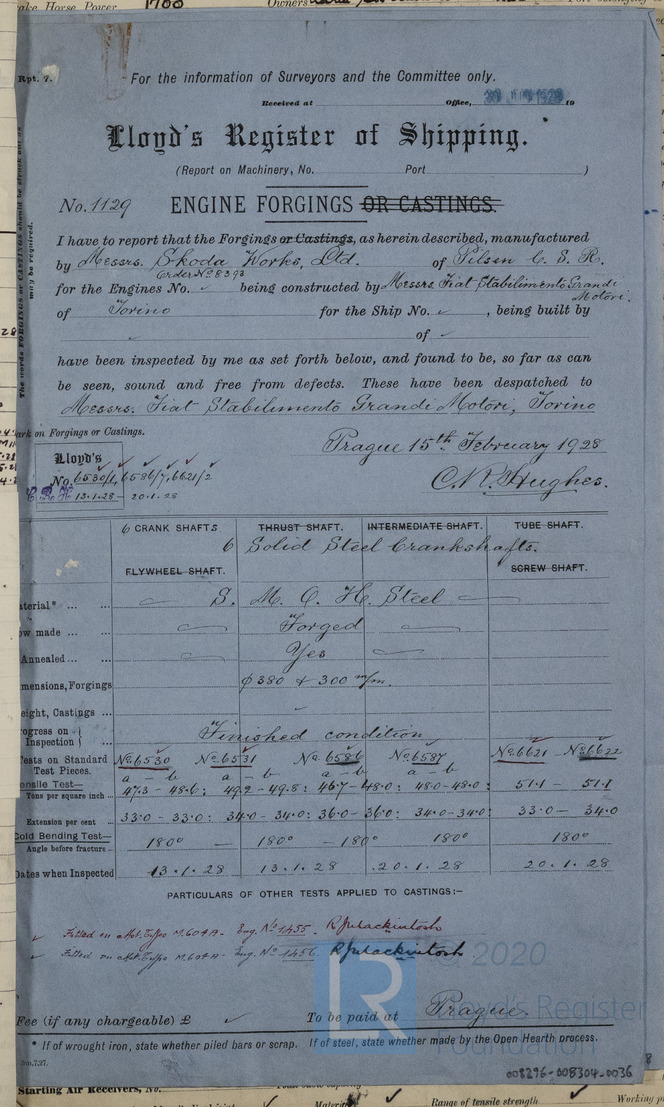 ake Horse Power 1700 Owners
Rpt. 7.
For the information of Surveyors and the Committee only.
Received at Office, 19
Lloyd's Register of Shipping.
(Report on Machinery, No. Port )
No. 1129 ENGINE FORGINGS OR CASTINGS.
The words FORGINGS or CASTINGS should be struck out as
may be required.
I have to report that the Forgings or Castings, as herein described, manufactured
by Messrs. Skoda Works, Ltd. of Pilsen C. S. R.
Order No 8393
for the Engines No. ✓ being constructed by Messrs Fiat Stabilimento Grandi
Motori.
of Torino for the Ship No. ✓ , being built by
✓ of ✓
have been inspected by me as set forth below, and found to be, so far as can
be seen, sound and free from defects. These have been despatched to
Messrs. Fiat Stabilimento Grandi Motori, Torino
ark on Forgings or Castings.
Prague 15th February 1928
Lloyd's
No. 6530/1, 6586/7, 6621/2
13.1.28 – 20.1.28
C.R. Hughes.
6 CRANK SHAFTS. THRUST SHAFT. INTERMEDIATE SHAFT. TUBE SHAFT.
6 Solid Steel Crankshafts.
FLYWHEEL SHAFT. SCREW SHAFT.
aterial* ... ... S. M. O. H. Steel
ow made ... ... Forged
Annealed ... ... Yes
mensions, Forgings φ 380 + 300 m/m.
eight, Castings ... ✓
rogress on Inspection } ... Finished condition
ests on Standard Test Pieces. No 6530 No 6531 No 6586 No 6587 No 6621 – No 6622
a – b a – b a – b a – b
ensile Test—
Tons per square inch ... 47.3 – 48.6: 49.2 – 49.8: 46.7 – 48.0: 48.0 – 48.0: 51.1 – 51.1
Extension per cent ... 33.0 – 33.0: 34.0 – 34.0: 36.0 – 36.0: 34.0 – 34.0: 33.0 – 34.0
Cold Bending Test—
Angle before fracture – 180° – 180° – 180° 180° 180°
Dates when Inspected 13.1.28 13.1.28 20.1.28 20.1.28
PARTICULARS OF OTHER TESTS APPLIED TO CASTINGS:–
✓ Fitted on Mot. Type M.604A – Eng. No 1455. RJMackintosh
✓ Fitted on Mot. Type M.604A – Eng. No 1456. RJMackintosh
© 2020
Lloyd's Register
Foundation
Fee (if any chargeable) £ ✓ To be paid at Prague.
* If of wrought iron, state whether piled bars or scrap. If of steel, state whether made by the Open Hearth process.
008296-008304-0036
Starting Air Receivers, No.
Range of tensile strength Working p